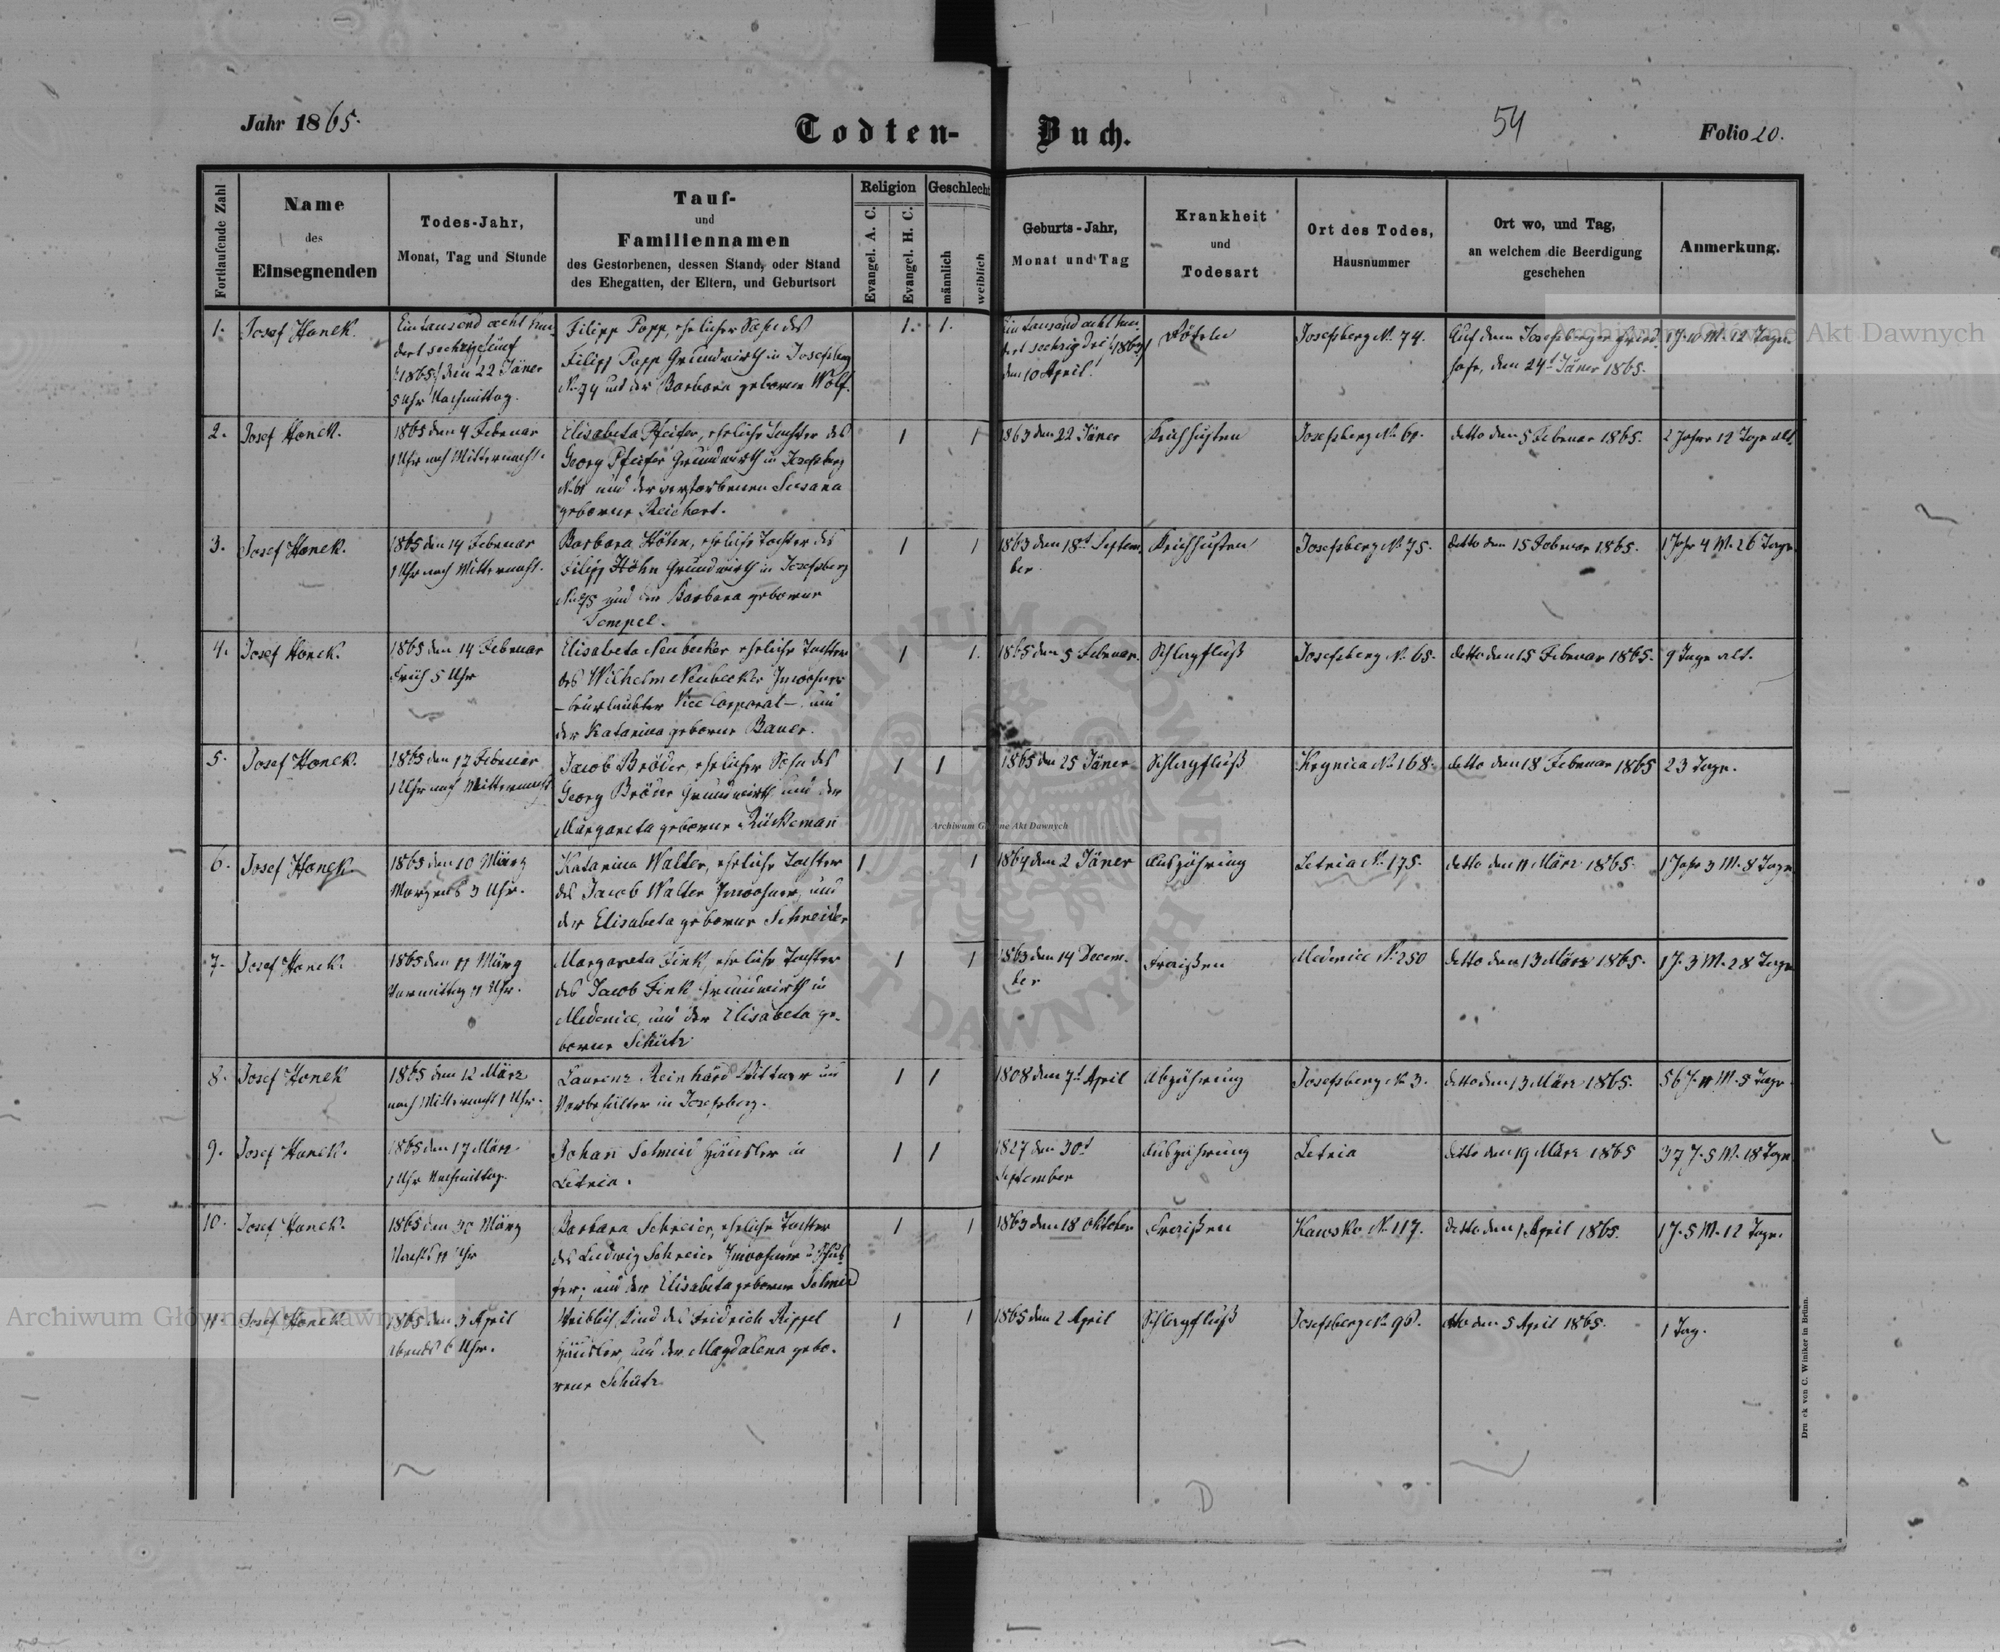 Jahr 1865.
Todten-Buch.
54
Folio 20.
Fortlaufende Zahl
Name
des
Einsegnenden
Todes-Jahr,
Monat, Tag und Stunde
Tauf-
und
Familiennamen
des Gestorbenen, dessen Stand, oder Stand
des Ehegatten, der Eltern, und Geburtsort
Religion
Evangel. A. C.
Evangel. H. C.
Geschlecht
männlich
weiblich
Geburts-Jahr,
Monat und Tag
Krankheit
und
Todesart
Ort des Todes,
Hausnummer
Ort wo, und Tag,
an welchem die Beerdigung
geschehen
Anmerkung.
1.
Josef Hanek.
Ein tausend acht hun-
dert sechzig fünf
/:1865:/ den 22 Jäner
5 Uhr Nachmittag.
Filipp Popp, ehelicher Sohn des
Filipp Popp Grundwirth in Josefsberg
No 74 und der Barbara geborne Wolf.
1.
1.
Ein tausend acht hun-
dert sechzig drei /1863/
den 10 April.
Rötheln
Josefsberg No 74.
Auf dem Josefsberger Fried-
hofe, den 24t Jäner 1865.
1 J. 10 M. 12 Tage.
2.
Josef Hanek.
1865 den 4 Februar
1 Uhr nach Mitternacht.
Elisabeta Pfeifer, eheliche Tochter des
Georg Pfeifer Grundwirth in Josefsberg
No 61 und der verstorbenen Susana
geborne Reichert.
1
1
1863 den 22 Jäner
Keichhusten
Josefsberg No 61.
detto den 5 Februar 1865.
2 Jahre 12 Tage alt
3.
Josef Hanek.
1865 den 14 Februar
1 Uhr nach Mitternacht.
Barbara Höhn, eheliche Tochter des
Filipp Höhn Grundwirth in Josefsberg
No 75 und der Barbara geborne
Tempel.
1
1
1863 den 18t Septem-
ber.
Keichhusten
Josefsberg No 75.
detto den 15 Februar 1865.
1 Jahr 4 M. 26 Tage.
4.
Josef Hanek.
1865 den 14 Februar
Früh 5 Uhr
Elisabeta Neubecker eheliche Tochter
des Wilhelm Neubecker Inwohner
- beurlaubter Vice Corporal - und
der Katarina geborne Bauer.
1
1.
1865 den 5 Februar.
Schlagfluß
Josefsberg No 65.
detto den 15 Februar 1865.
9 Tage alt.
5.
Josef Hanek.
1865 den 17 Februar
1 Uhr nach Mitternacht
Jacob Bröder, ehelicher Sohn des
Georg Bröder Grundwirth und der
Margareta geborne Rückeman
1
1
1865 den 25 Jäner
Schlagfluß
Krynica No 168.
detto den 18 Februar 1865
23 Tage.
6.
Josef Hanek
1865 den 10 März
Morgens 3 Uhr.
Katarina Walter, eheliche Tochter
des Jacob Walter Inwohner, und
der Elisabeta geborne Schneider
1
1
1864 den 2 Jäner
Auszöhrung
Letnia No 175.
detto den 11 März 1865.
1 Jahr 3 M. 8 Tage
7.
Josef Hanek.
1865 den 11 März
Vormittag 11 Uhr.
Margareta Fink, eheliche Tochter
des Jacob Fink Grundwirth in
Medenice, und der Elisabeta ge-
borne Schütz
1
1
1863 den 14 Decem-
ber
Fraißen
Medenice No 250
detto den 13 März 1865.
1 J. 3 M. 28 Tage
8.
Josef Hanek
1865 den 12 März
nach Mitternacht 1 Uhr.
Laurenz Reinhard Wittwer und
Vorbehälter in Josefsberg.
1
1
1808 den 7t April
Abzöhrung
Josefsberg No 3.
detto den 13 März 1865.
56 J. 11 M. 5 Tage
9.
Josef Hanek.
1865 den 17 März
1 Uhr Nachmittag.
Johan Schmid Häusler in
Letnia.
1
1
1827 den 30t
September
Auszöhrung
Letnia
detto den 19 März 1865
37 J. 5 M. 18 Tage
10.
Josef Hanek.
1865 den 30 März
Nachts 11 Uhr
Barbara Schreier, eheliche Tochter
des Ludwig Schreier Inwohner u Schus-
ter, und der Elisabeta geborne Schmid
1
1
1863 den 18 Oktober
Fraißen
Kawsko No 117.
detto den 1 April 1865.
1 J. 5 M. 12 Tage.
11.
Josef Hanek
1865 den 3 April
Abends 6 Uhr.
Weiblich Kind des Fridrich Rippel
Häusler, und der Magdalena gebo-
rene Schütz
1
1
1865 den 2 April
Schlagfluß
Josefsberg No 96.
dto den 5 April 1865.
1 Tag.
D
Druck von C. Winiker in Brünn.
Archiwum Główne Akt Dawnych
Archiwum Główne Akt Dawnych
Archiwum Główne Akt Dawnych
ARCHIWUM GŁÓWNE AKT DAWNYCH